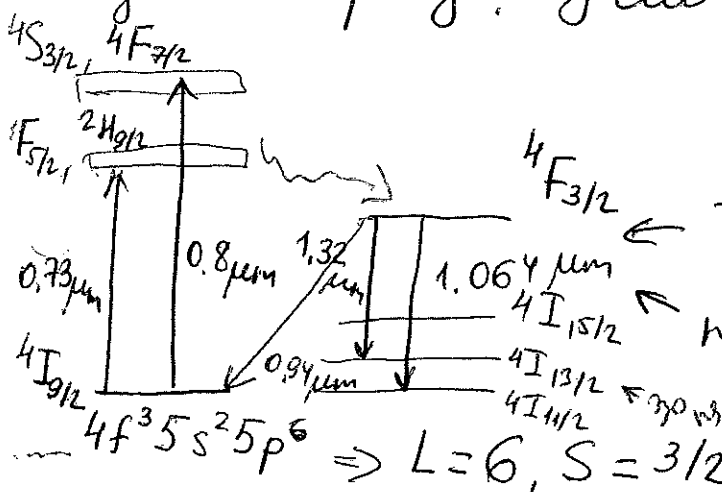 ⁴S₃/₂, ⁴F₇/₂
⁴F₅/₂, ²H₉/₂
⁴F₃/₂
0.73 μm
0.8 μm
1.32 μm
1.064 μm
⁴I₁₅/₂
0.94 μm
⁴I₁₃/₂
⁴I₁₁/₂
⁴I₉/₂
4f³5s²5p⁶ ⇒ L = 6, S = 3/2